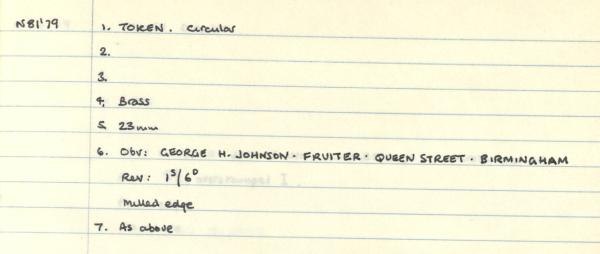 N81'79 1. TOKEN. Circular
2.
3.
4. Brass
5. 23mm
6. Obv: GEORGE H. JOHNSON · FRUITER · QUEEN STREET · BIRMINGHAM
Rev: 1ˢ/6ᴰ
Milled edge
7. As above